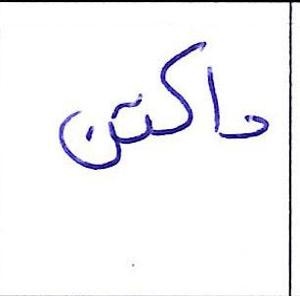 داكتن